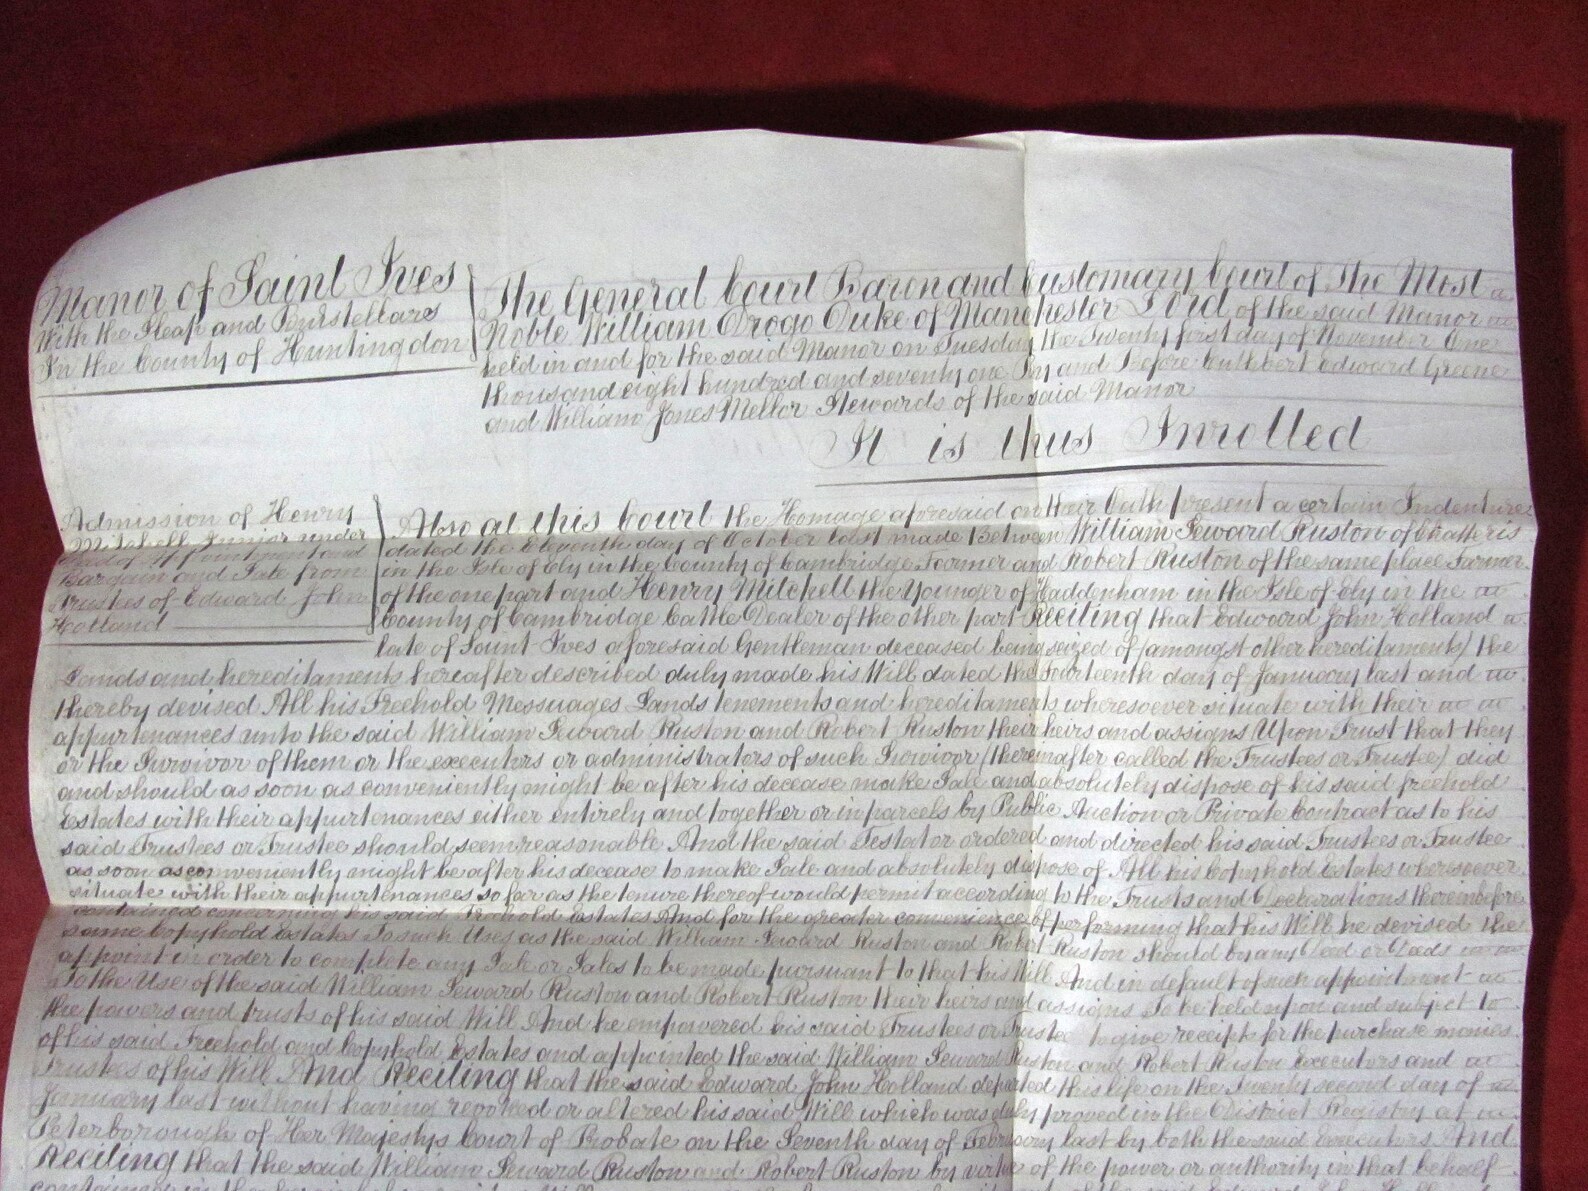 Manor of Saint Ives
With the Sleap and Burstellars
In the County of Huntingdon
The General Court Baron and Customary Court of The Most
Noble William Drogo Duke of Manchester Lord of the said Manor
held in and for the said Manor on Tuesday the Twenty first day of November One
thousand eight hundred and seventy one By and Before Cuthbert Edward Greene
and William Jones Mellor Stewards of the said Manor
It is thus Inrolled
Admission of Henry
Mitchell Junior under
Deed of Appointment and
Bargain and Sale from
Trustees of Edward John
Holland
Also at this Court the Homage aforesaid on their Oath present a certain Indenture
dated the Eleventh day of October last made Between William Seward Ruston of Chatteris
in the Isle of Ely in the County of Cambridge Farmer and Robert Ruston of the same place Farmer
of the one part and Henry Mitchell the Younger of Haddenham in the Isle of Ely in the
County of Cambridge Cattle Dealer of the other part Reciting that Edward John Holland
late of Saint Ives aforesaid Gentleman deceased being seized of (amongst other hereditaments) the
Lands and hereditaments hereafter described duly made his Will dated the fourteenth day of January last and
thereby devised All his Freehold Messuages Lands tenements and hereditaments wheresoever situate with their
appurtenances unto the said William Seward Ruston and Robert Ruston their heirs and assigns Upon Trust that they
or the Survivor of them or the executors or administrators of such Survivor (thereinafter called the Trustees or Trustee) did
and should as soon as conveniently might be after his decease make Sale and absolutely dispose of his said freehold
Estates with their appurtenances either entirely and together or in parcels by Public Auction or Private Contract as to his
said Trustees or Trustee should seem reasonable And the said Testator ordered and directed his said Trustees or Trustee
as soon as conveniently might be after his decease to make Sale and absolutely dispose of All his Copyhold Estates wheresoever
situate with their appurtenances so far as the tenure thereof would permit according to the Trusts and Declarations thereinbefore
contained concerning his said Freehold Estates And for the greater convenience of performing that his Will he devised the
same Copyhold Estates To such Uses as the said William Seward Ruston and Robert Ruston should by any Deed or Deeds
appoint in order to complete any Sale or Sales to be made pursuant to that his Will And in default of such appointment
To the Use of the said William Seward Ruston and Robert Ruston their heirs and assigns To be held upon and subject to
the powers and trusts of his said Will And he empowered his said Trustees or Trustee to give receipts for the purchase monies
of his said Freehold and Copyhold Estates and appointed the said William Seward Ruston and Robert Ruston Executors and
Trustees of his Will And Reciting that the said Edward John Holland departed this life on the Twenty second day of
January last without having revoked or altered his said Will which was duly proved in the District Registry at
Peterborough of Her Majestys Court of Probate on the Seventh day of February last by both the said Executors And
Reciting that the said William Seward Ruston and Robert Ruston by virtue of the power or authority in that behalf